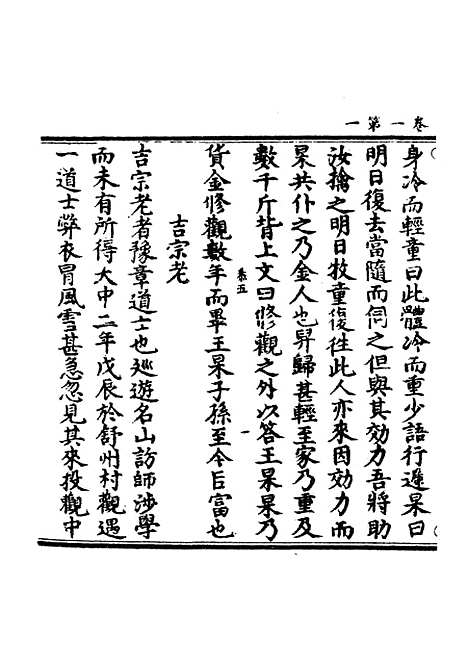 卷一第一
身冷而輕童曰此體冷而重少語行遲杲曰
明日復去當隨而伺之但與其効力吾將助
汝擒之明日牧童復往此人亦來因効力而
杲共仆之乃金人也舁歸甚輕至家乃重及
數千斤背上文曰修觀之外以答王杲杲乃
恭五
一
貨金修觀數年而畢王杲子孫至今巨富也
吉宗老
吉宗老者豫章道士也巡遊名山訪師涉學
而未有所得大中二年戊辰於舒州村觀遇
一道士弊衣冒風雪甚急忽見其來投觀中